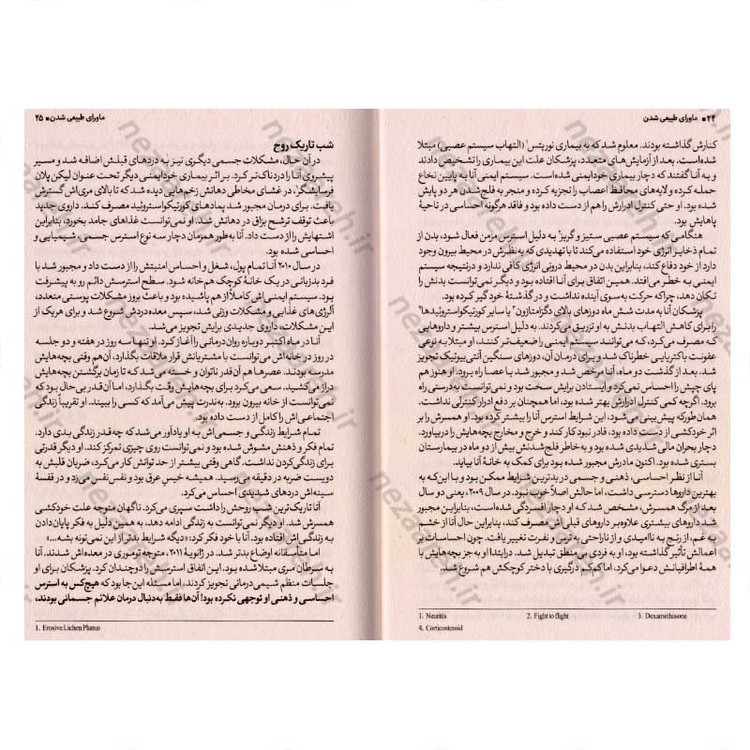 ۲۴ ■ ماورای طبیعی شدن
کنارش گذاشته بودند. معلوم شد که به بیماری نوریتس¹ (التهاب سیستم عصبی) مبتلا
شده‌است. بعد از آزمایش‌های متعدد، پزشکان علت این بیماری را تشخیص دادند
و به آنا گفتند که دچار بیماری خودایمنی شده‌است. سیستم ایمنی آنا به پایین نخاع
حمله کرده و لایه‌های محافظ اعصاب را تجزیه کرده و منجر به فلج‌شدن هر دو پایش
شده بود. او حتی کنترل ادرارش را هم از دست داده بود و فاقد هرگونه احساسی در ناحیۀ
پاهایش بود.
هنگامی که سیستم عصبی ستیز و گریز² به دلیل استرس مزمن فعال شود، بدن از
تمام ذخایر انرژی خود استفاده می‌کند تا با تهدیدی که به‌نظرش در محیط بیرون وجود
دارد از خود دفاع کند، بنابراین بدن در محیط درونی انرژی کافی ندارد و درنتیجه سیستم
ایمنی به خطر می‌افتد. همین اتفاق برای آنا افتاده بود و دیگر نمی‌توانست بدنش را
تکان دهد، چراکه حرکت به‌سوی آینده نداشت و در گذشتۀ خود گیر کرده بود.
پزشکان آنا به مدت شش ماه دوزهای بالای دگزامتازون³ یا سایر کورتیکواستروئیدها⁴
را برای کاهش التهاب بدنش به او تزریق می‌کردند. به دلیل استرس بیشتر و داروهایی
که مصرف می‌کرد، که می‌توانند سیستم ایمنی را ضعیف‌تر کنند، او مبتلا به نوعی
عفونت باکتریایی خطرناک شد و برای درمان آن، دوزهای سنگین آنتی‌بیوتیک تجویز
شد. بعد از گذشت دو ماه، آنا مرخص شد و مجبور شد با عصا راه برود. او هنوز هم
پای چپش را احساس نمی‌کرد و ایستادن برایش سخت بود و نمی‌توانست به‌درستی راه
برود. اگرچه کمی کنترل ادرارش بهتر شده بود، اما همچنان بر دفع ادرار کنترلی نداشت.
همان‌طورکه پیش‌بینی می‌شود، این شرایط استرس آنا را بیشتر کرده بود. او همسرش را بر
اثر خودکشی از دست داده بود، قادر نبود کار کند و خرج و مخارج بچه‌هایش را دربیاورد،
دچار بحران مالی شدیدی شده بود و به‌خاطر فلج‌شدنش بیش از دو ماه در بیمارستان
بستری شده بود. اکنون مادرش مجبور شده بود برای کمک به خانۀ آنا بیاید.
آنا از نظر احساسی، ذهنی و جسمی در بدترین شرایط ممکن بود و با این‌که به
بهترین داروها دسترسی داشت، اما حالش اصلاً خوب نبود. در سال ۲۰۰۹، یعنی دو سال
بعد از مرگ همسرش، مشخص شد که او دچار افسردگی شده‌است، بنابراین مجبور
شد داروهای بیشتری علاوه‌بر داروهای قبلی‌اش مصرف کند، بنابراین حال آنا از خشم
به غم، از رنج به ناامیدی و از ناراحتی به ترس و نفرت تغییر یافت. چون احساسات بر
اعمالش تأثیر گذاشته بود، او به فردی بی‌منطق تبدیل شد. در ابتدا او به جز بچه‌هایش با
همۀ اطرافیانش دعوا می‌کرد، اما کم‌کم درگیری با دختر کوچکش هم شروع شد.
1. Neuritis 2. Fight to flight 3. Dexamethisone
4. Corticosteroid
ماورای طبیعی شدن ■ ۲۵
شب تاریک روح
در آن حال، مشکلات جسمی دیگری نیز به دردهای قبلش اضافه شد و مسیر
پیشروی آنا را دردناک‌تر کرد. بر اثر بیماری خودایمنی دیگر تحت عنوان لیکن پلان
فرسایشگر¹، در غشای مخاطی دهانش زخم‌هایی دیده شد که تا بالای مری‌اش گسترش
یافت. برای درمان مجبور شد پمادهای کورتیکواستروئید مصرف کند. داروی جدید
باعث توقف ترشح بزاق در دهانش شد. او نمی‌توانست غذاهای جامد بخورد، بنابراین
اشتهایش را از دست داد. آنا به‌طور همزمان دچار سه نوع استرس جسمی، شیمیایی و
احساسی شده بود.
در سال ۲۰۱۰ آنا تمام پول، شغل و احساس امنیتش را از دست داد و مجبور شد با
فرد بدزبانی در یک خانۀ کوچک هم‌خانه شود. سطح استرسش دائم رو به پیشرفت
بود. سیستم ایمنی‌اش کاملاً از هم پاشیده بود و باعث بروز مشکلات پوستی متعدد،
آلرژی‌های غذایی و مشکلات وزنی شده، سپس معده‌دردش شروع شد و برای هریک از
این مشکلات، داروی جدیدی برایش تجویز می‌شد.
آنا در ماه اکتبر دوباره روان‌درمانی را آغاز کرد. او تنها سه روز در هفته و دو جلسه
در روز در خانه‌اش می‌توانست با مشتریانش قرار ملاقات بگذارد، آن‌هم وقتی بچه‌هایش
در مدرسه بودند. عصرها هم آن‌قدر ناتوان و خسته می‌شد که تا زمان برگشتن بچه‌هایش
دراز می‌کشید. سعی می‌کرد برای بچه‌هایش وقت بگذارد، اما آن‌قدر بی‌حال بود که
نمی‌توانست از خانه بیرون برود. به‌ندرت پیش می‌آمد که کسی را ببیند. او تقریباً زندگی
اجتماعی‌اش را کامل از دست داده بود.
تمام شرایط زندگی و جسمی‌اش به او یادآور می‌شد که چه‌قدر زندگی بدی دارد.
تمام فکر و ذهنش مشوش شده بود و نمی‌توانست روی چیزی تمرکز کند. او دیگر قدرتی
برای زندگی‌کردن نداشت. گاهی وقتی بیشتر از حد توانش کار می‌کرد، ضربان قلبش به
دویست ضربه در دقیقه می‌رسید. همیشه خیس عرق بود و نفس‌نفس می‌زد و در قفسۀ
سینه‌اش دردهای شدیدی احساس می‌کرد.
آنا تاریک‌ترین شب روحش را داشت سپری می‌کرد. ناگهان متوجه علت خودکشی
همسرش شد. او دیگر نمی‌توانست به زندگی ادامه دهد، به همین دلیل به فکر پایان‌دادن
به زندگی‌اش افتاده بود. آنا با خود فکر کرد: «دیگه شرایط بدتر از این نمی‌تونه بشه...»
اما متأسفانه اوضاع بدتر شد. در ژانویۀ ۲۰۱۱، متوجه توموری در معده‌اش شدند. آنا
به سرطان مری مبتلا شده بود. این اتفاق استرسش را دوچندان کرد. پزشکان برای او
جلسات منظم شیمی‌درمانی تجویز کردند، اما مسئله این جا بود که هیچ‌کس به استرس
احساسی و ذهنی او توجهی نکرده بود! آن‌ها فقط به‌دنبال درمان علائم جسمانی بودند،
1. Erosive Lichen Planus
nezaneh.ir